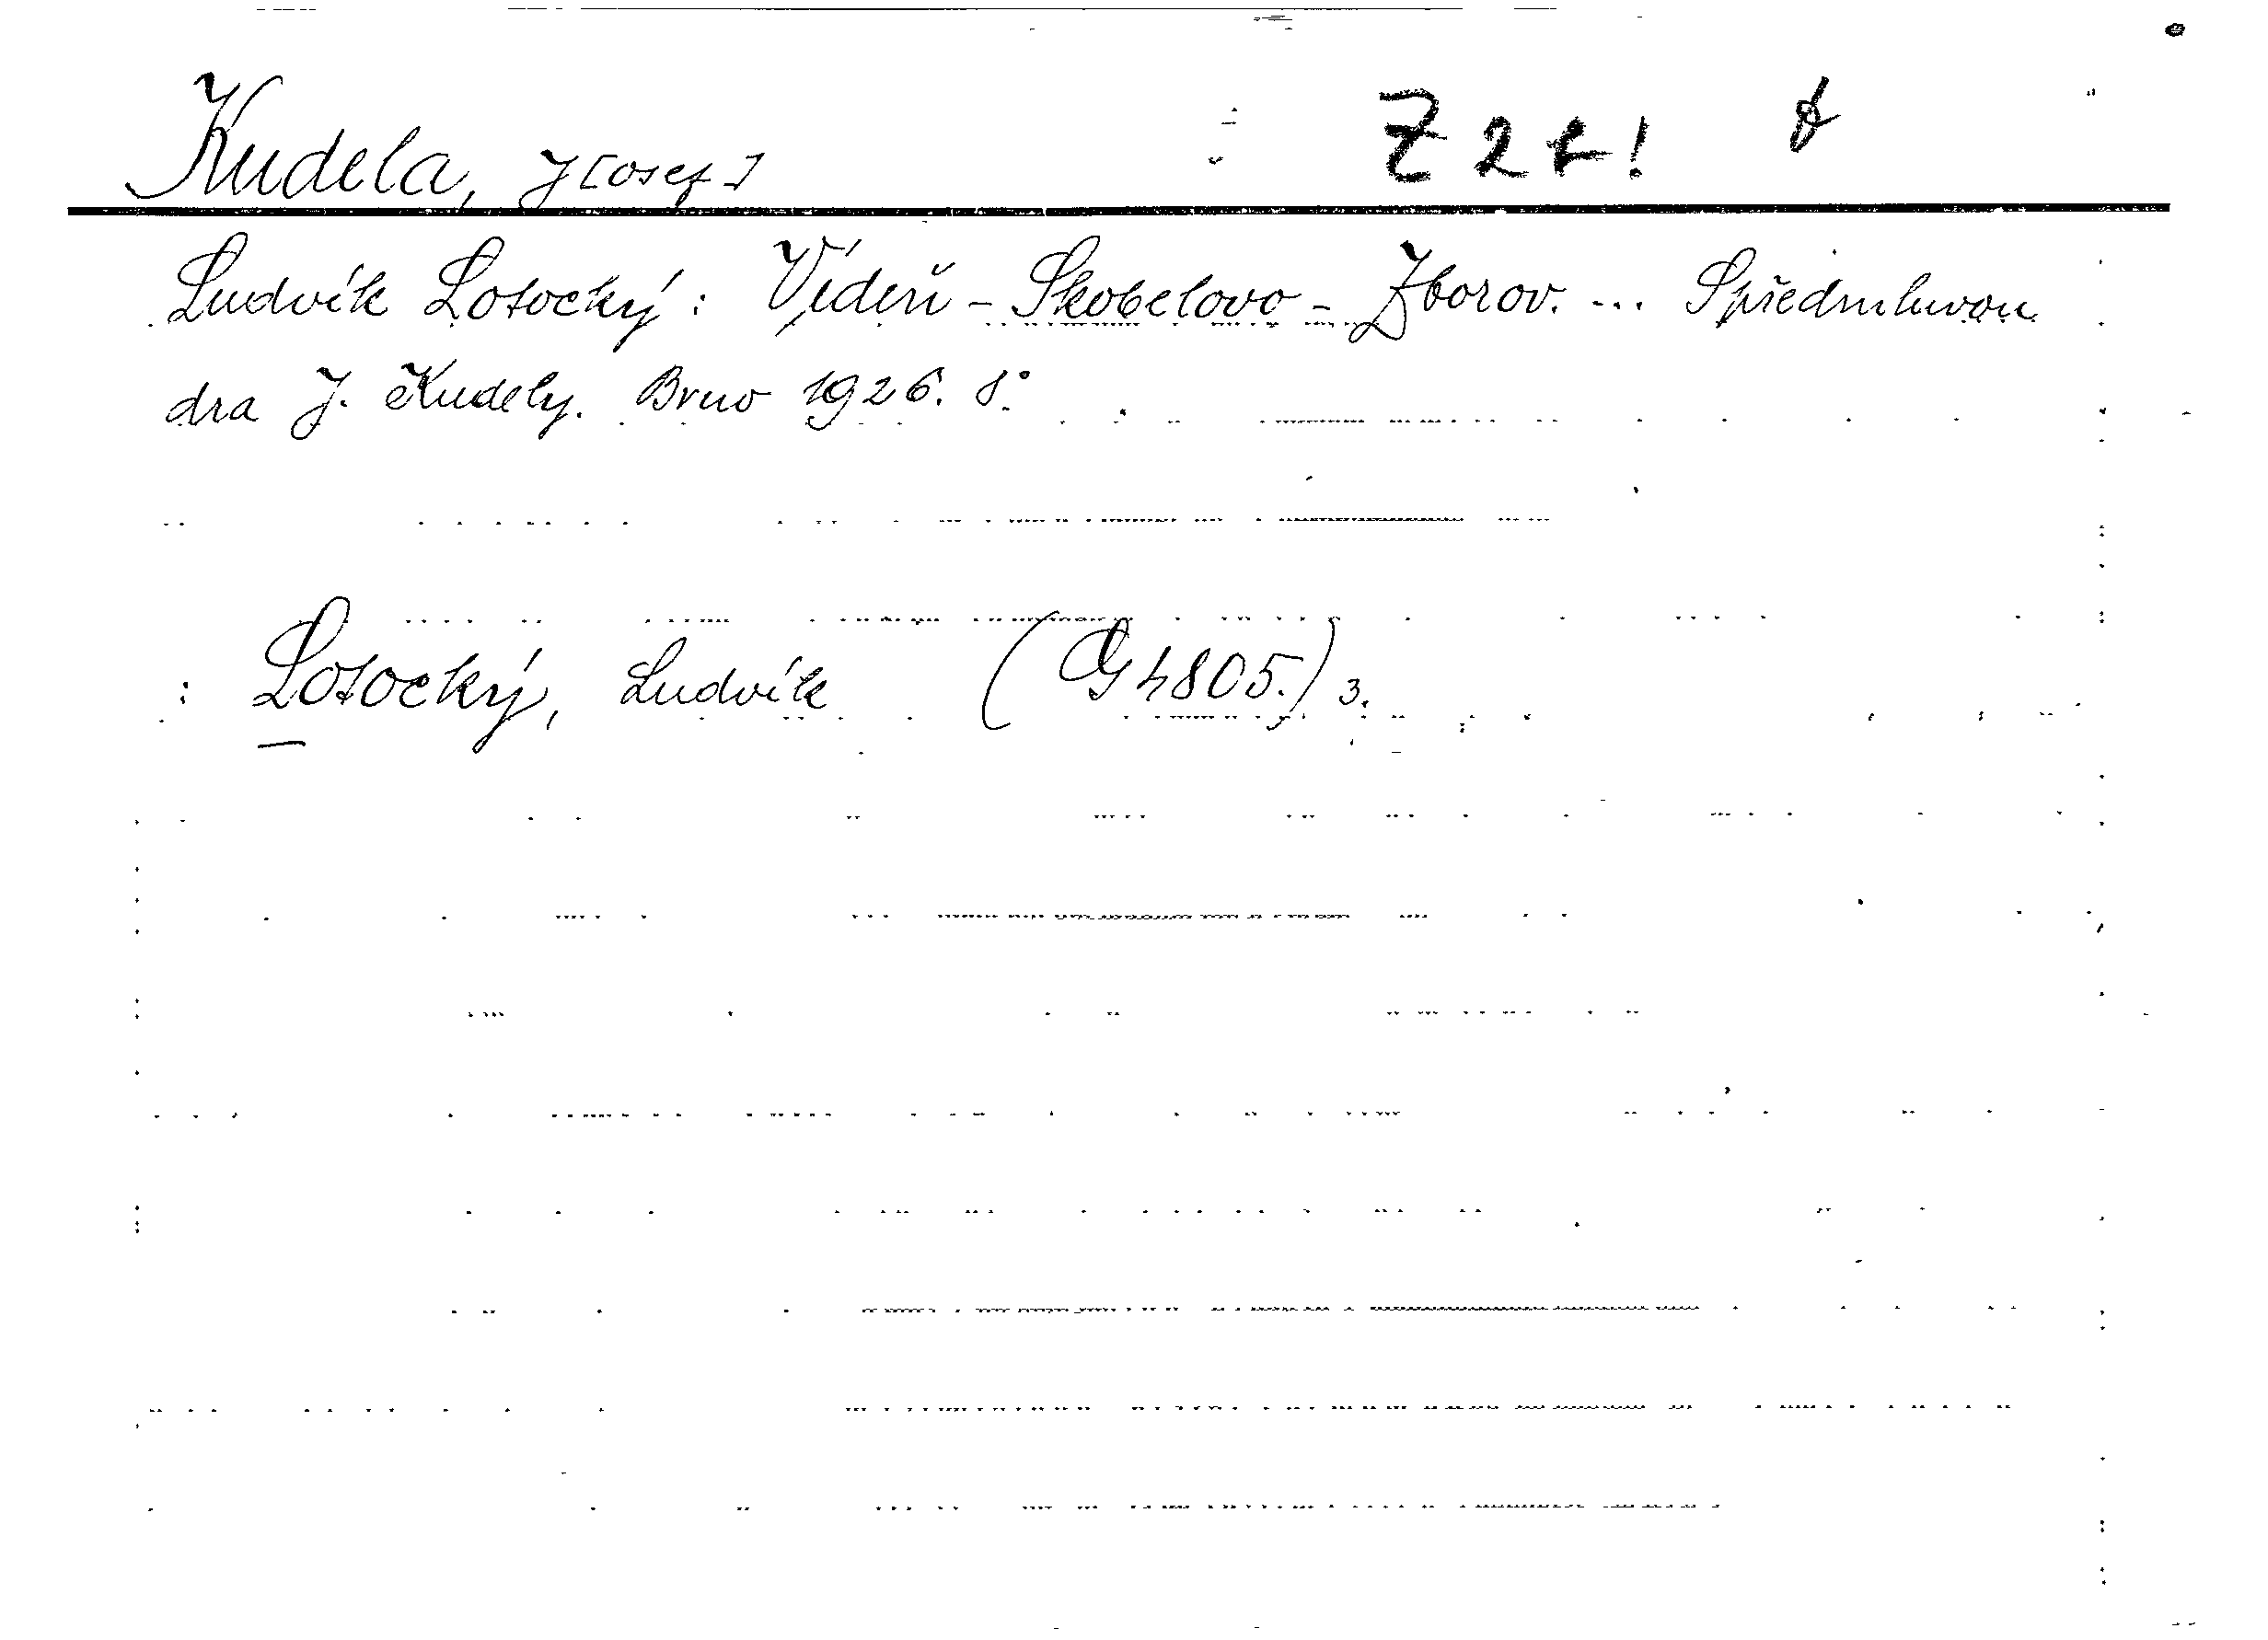 Kudela, J[osef]
Ludvík Losocký: Vídeň - Skobelovo - Zborov. ... S předmluvou
dra J. Kudely. Brno 1926. 8°.
: Losocký, Ludvík (G 4805.) 3.